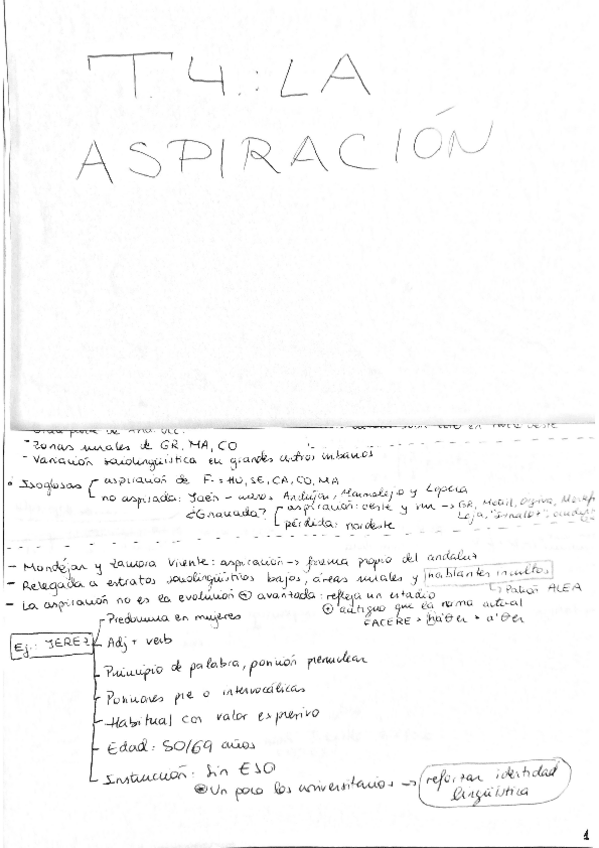 T.4.: LA
ASPIRACIÓN
- Zonas rurales de GR, MA, CO
- Variación sociolingüística en grandes centros urbanos
• Isoglosas aspiración de F-: HU, SE, CA, CO, MA
no aspirada: Jaén - menos Andújar, Marmolejo y Lopera
¿Granada? aspiración: oeste y sur → GR, Motril, Órgiva,
Loja,
pérdida: nordeste
- Mondéjar y Zamora Vicente: aspiración → forma propia del andaluz
- Relegada a estratos sociolingüísticos bajos, áreas rurales y hablantes incultos
↳ ALEA
- La aspiración no es la evolución ⊕ avanzada: refleja un estadio
⊕ antiguo que la norma actual
FACERE > haθer > a'θer
Ej.: JEREZ
- Predomina en mujeres
- Adj + verb
- Principio de palabra, posición prenuclear
- Posiciones pre o intervocálicas
- Habitual con valor expresivo
- Edad: 50/69 años
- Instrucción: Sin ESO
⊕ Un poco los universitarios → reforzar identidad
lingüística
1